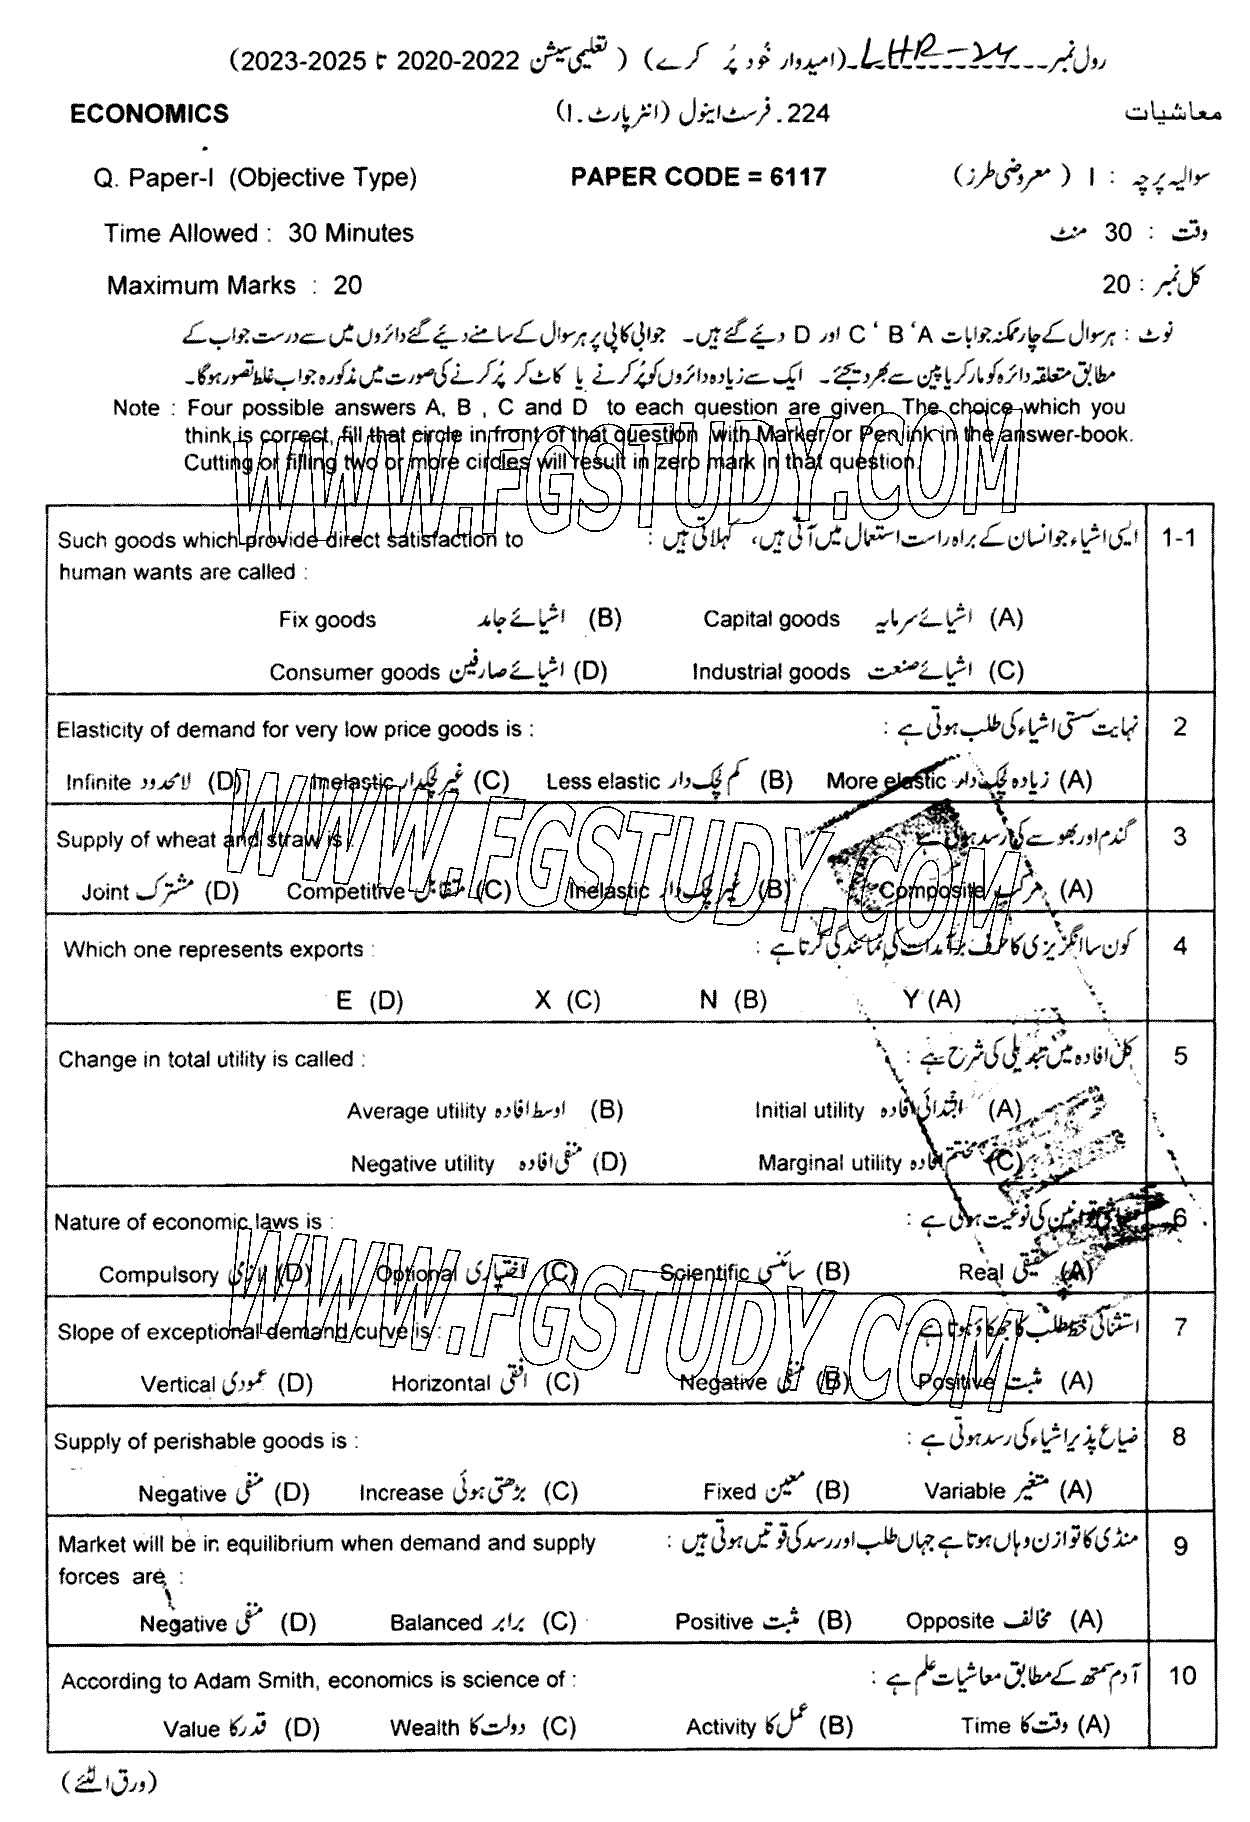 رول نمبر LHR-24 (امیدوار خُود پُر کرے) ( تعلیمی سیشن 2022-2020 تا 2025-2023)
ECONOMICS 224۔ فرسٹ اینول (انٹر پارٹ۔I) معاشیات
Q. Paper-I (Objective Type) PAPER CODE = 6117 سوالیہ پرچہ : I ( معروضی طرز)
Time Allowed : 30 Minutes وقت : 30 منٹ
Maximum Marks : 20 کل نمبر : 20
نوٹ : ہر سوال کے چار ممکنہ جوابات A ‘B ‘C اور D دئیے گئے ہیں۔ جوابی کاپی پر ہر سوال کے سامنے دیئے گئے دائروں میں سے درست جواب کے
مطابق متعلقہ دائرہ کو مارکر یا پین سے بھر دیجئے۔ ایک سے زیادہ دائروں کو پُر کرنے یا کاٹ کر پُر کرنے کی صورت میں مذکورہ جواب غلط تصور ہوگا۔
Note : Four possible answers A, B , C and D to each question are given. The choice which you
think is correct, fill that circle in front of that question with Marker or Pen ink in the answer-book.
Cutting or filling two or more circles will result in zero mark in that question.
WWW.FGSTUDY.COM
Such goods which provide direct satisfaction to ایسی اشیاء جو انسان کے براہ راست استعمال میں آتی ہیں، کہلاتی ہیں : 1-1
human wants are called :
Fix goods اشیائے جامد (B) Capital goods اشیائے سرمایہ (A)
Consumer goods اشیائے صارفین (D) Industrial goods اشیائے صنعت (C)
Elasticity of demand for very low price goods is : نہایت سستی اشیاء کی طلب ہوتی ہے : 2
Infinite لامحدود (D) Inelastic غیر لچکدار (C) Less elastic کم لچک دار (B) More elastic زیادہ لچک دار (A)
WWW.FGSTUDY.COM
Supply of wheat and straw is : گندم اور بھوسے کی رسد ہوتی ہے 3
Joint مشترک (D) Competitive متقابل (C) Inelastic غیر لچک دار (B) Composite مرکب (A)
Which one represents exports : کون سا انگریزی کا حرف برآمدات کی نمائندگی کرتا ہے : 4
E (D) X (C) N (B) Y (A)
Change in total utility is called : کل افادہ میں تبدیلی کی شرح ہے : 5
Average utility اوسط افادہ (B) Initial utility ابتدائی افادہ (A)
Negative utility منفی افادہ (D) Marginal utility مختتم افادہ (C)
Nature of economic laws is : معاشی قوانین کی نوعیت ہوتی ہے : 6
Compulsory لازمی (D) Optional اختیاری (C) Scientific سائنسی (B) Real حقیقی (A)
WWW.FGSTUDY.COM
Slope of exceptional demand curve is : استثنائی خط طلب کا جھکاؤ ہوتا ہے 7
Vertical عمودی (D) Horizontal افقی (C) Negative منفی (B) Positive مثبت (A)
Supply of perishable goods is : ضیاع پذیر اشیاء کی رسد ہوتی ہے : 8
Negative منفی (D) Increase بڑھتی ہوئی (C) Fixed معین (B) Variable متغیر (A)
Market will be in equilibrium when demand and supply منڈی کا توازن وہاں ہوتا ہے جہاں طلب اور رسد کی قوتیں ہوتی ہیں : 9
forces are :
Negative منفی (D) Balanced برابر (C) Positive مثبت (B) Opposite مخالف (A)
According to Adam Smith, economics is science of : آدم سمتھ کے مطابق معاشیات علم ہے : 10
Value قدر کا (D) Wealth دولت کا (C) Activity عمل کا (B) Time وقت کا (A)
(ورق الٹئے)